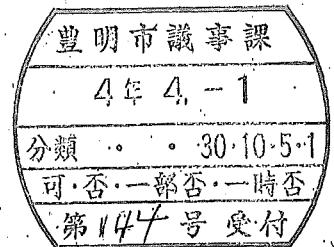 豊明市議事課
4年4.-1
分類 ・ ・ 30・10・5・1
可・否・一部否・一時否
第144号受付